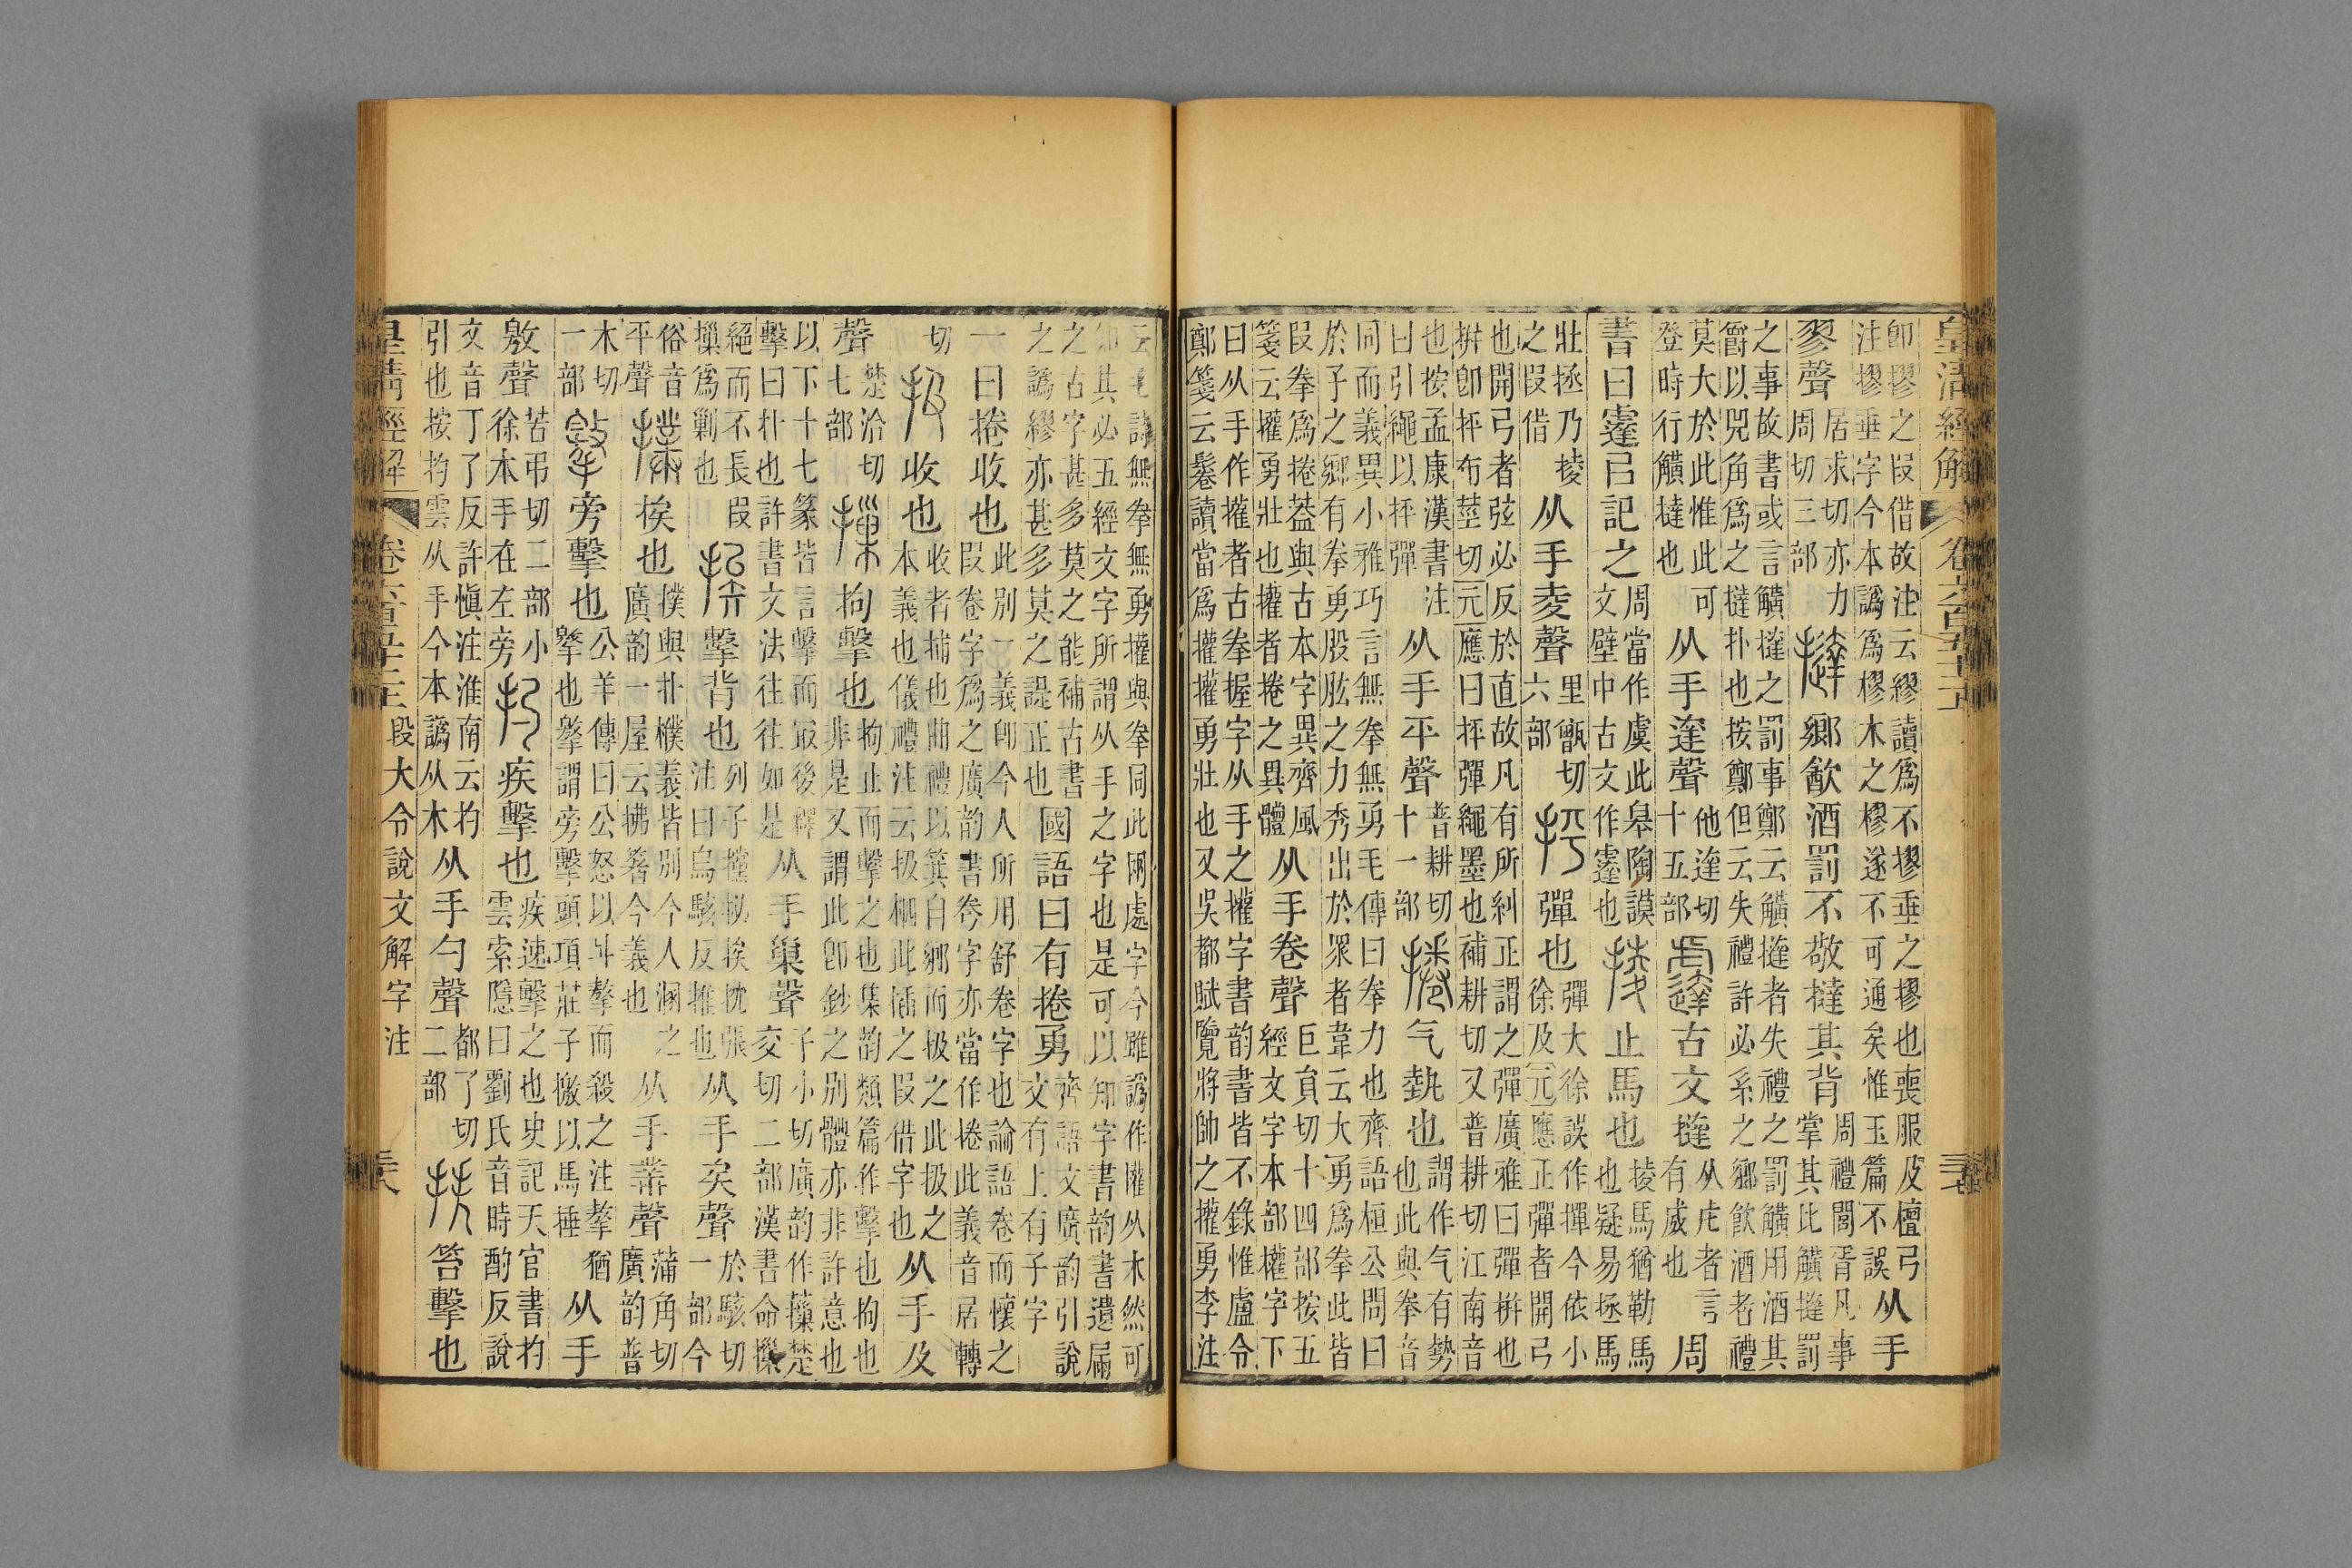 皇清經解 卷六百五十三 三七
卽摎之叚借故注云繆讀爲不摎垂之摎也喪服及檀弓
注摎垂字今本譌爲樛木之樛遂不可通矣惟玉篇不誤
从手
翏聲
居求切亦力
周切三部
撻鄉飮酒罰不敬撻其背
周禮閭胥凡事
掌其比觵撻罰
之事故書或言觵撻之罰事鄭云觵撻者失禮之罰觵用酒其
爵以兕角爲之撻扑也按鄭但云失禮許必系之鄉飮酒者禮
莫大於此惟此可
登時行觵撻也
从手達聲
他達切
十五部
古文撻
从虍者言
有威也
周
書曰𨘢㠯記之
周當作虞此皋陶謨
文壁中古文作𨘢也
㨋止馬也
㨋馬猶勒馬
也疑易拯馬
壯拯乃㨋
之叚借
从手夌聲
里甑切
六部
抨彈也
彈大徐誤作撣今依小
徐及元應正彈者開弓
也開弓者弦必反於直故凡有所糾正謂之彈廣雅曰彈拼也
拼卽抨布莖切元應曰抨彈繩墨也補耕切又普耕切江南音
也按孟康漢書注
曰引繩以抨彈
从手平聲
普耕切
十一部
捲气埶也
謂作气有勢
也此與拳音
同而義異小雅巧言無拳無勇毛傳曰拳力也齊語桓公問曰
於子之鄉有拳勇股肱之力秀出於眾者韋云大勇爲拳此皆
叚拳爲捲葢與古本字異齊風
箋云㩲勇壯也㩲者捲之異體
从手卷聲
巨員切十四部按五
經文字本部㩲字下
曰从手作㩲者古拳握字从手之㩲字書韵書皆不錄惟盧令
鄭箋云鬈讀當爲㩲㩲勇壯也又吳都賦覽將帥之㩲勇李注
云毛詩無拳無勇㩲與拳同此兩處字今雖譌作權从木然可
知其必五經文字所謂从手之字也是可以知字書韵書遺屚
之古字甚多莫之能補古書
之譌繆亦甚多莫之諟正也
國語曰有捲勇
齊語文廣韵引說
文有上有子字
一曰捲收也
此別一義卽今人所用舒卷字也論語卷而懷之
叚卷字爲之廣韵書卷字亦當作捲此義音居轉
切
扱收也
收者捕也曲禮以箕自鄉而扱之此扱之
本義也儀禮注云扱柶此揷之叚借字也
从手及
聲
楚洽切
七部
摷拘擊也
拘止而擊之也集韵類篇作擊也拘也
非是又謂此卽鈔之別體亦非許意也
以下十七篆皆言擊而㝡後釋
擊曰扑也許書文法往往如是
从手巢聲
子小切廣韵作摷楚
交切二部漢書命樔
絕而不長叚
樔爲剿也
挨擊背也
列子㩻㧙挨抌張
注曰烏駭反推也
从手矣聲
於駭切
一部今
俗音
平聲
撲挨也
撲與扑㯷義皆別今人溷之
廣韵一屋云拂箸今義也
从手菐聲
蒲角切
廣韵普
木切
一部
擎旁擊也
公羊傳曰公怒以斗摮而殺之注摮猶
擎也擎謂旁擊頭項莊子撽以馬捶
从手
敫聲
苦弔切二部小
徐本手在左旁
扚疾擊也
疾速擊之也史記天官書杓
雲索隱曰劉氏音時酌反說
文音丁了反許愼注淮南云杓
引也按杓雲从手今本譌从木
从手勺聲
都了切
二部
抶笞擊也
皇清經解 卷六百五十三 段大令說文解字注 三八